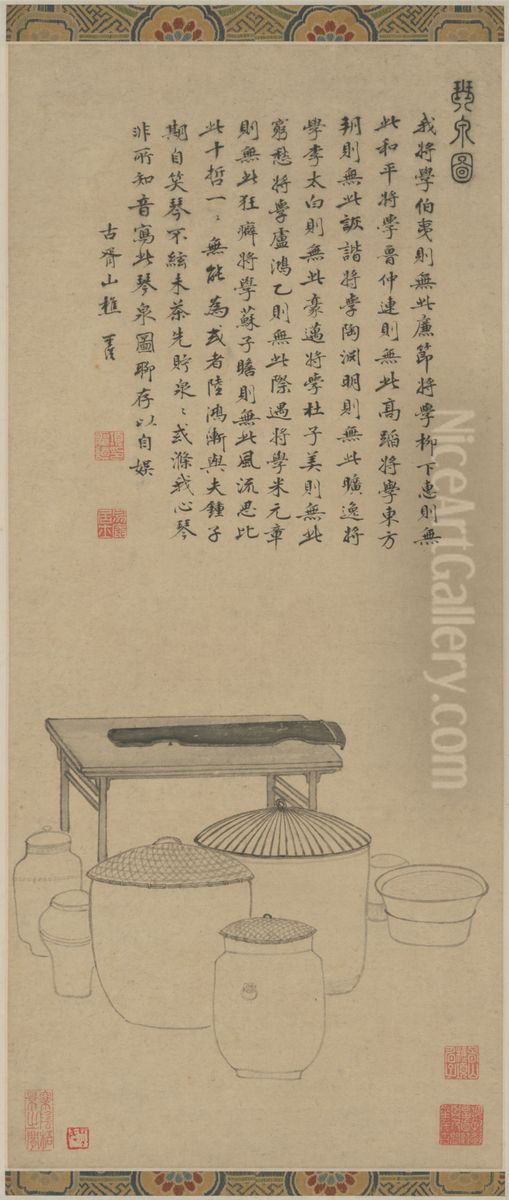 琴泉圖
我將學伯夷則無此廉節將學柳下惠則無
此和平將學魯仲連則無此高蹈將學東方
朔則無此詼諧將學陶淵明則無此曠逸將
學李太白則無此豪邁將學杜子美則無此
窮愁將學盧鴻乙則無此際遇將學米元章
則無此狂癖將學蘇子瞻則無此風流思比
此十哲一〻無能為或者陸鴻漸與夫鍾子
期自笑琴不絃未茶先貯泉〻或滌我心琴
非所知音寫此琴泉圖聊存以自娛
古胥山樵
NiceArtGallery.com